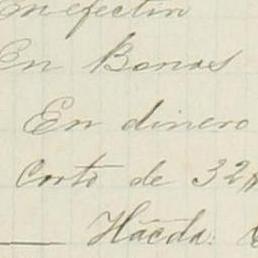 En efectiv
En Bonos
En dinero
Corto de 32
Hacda: